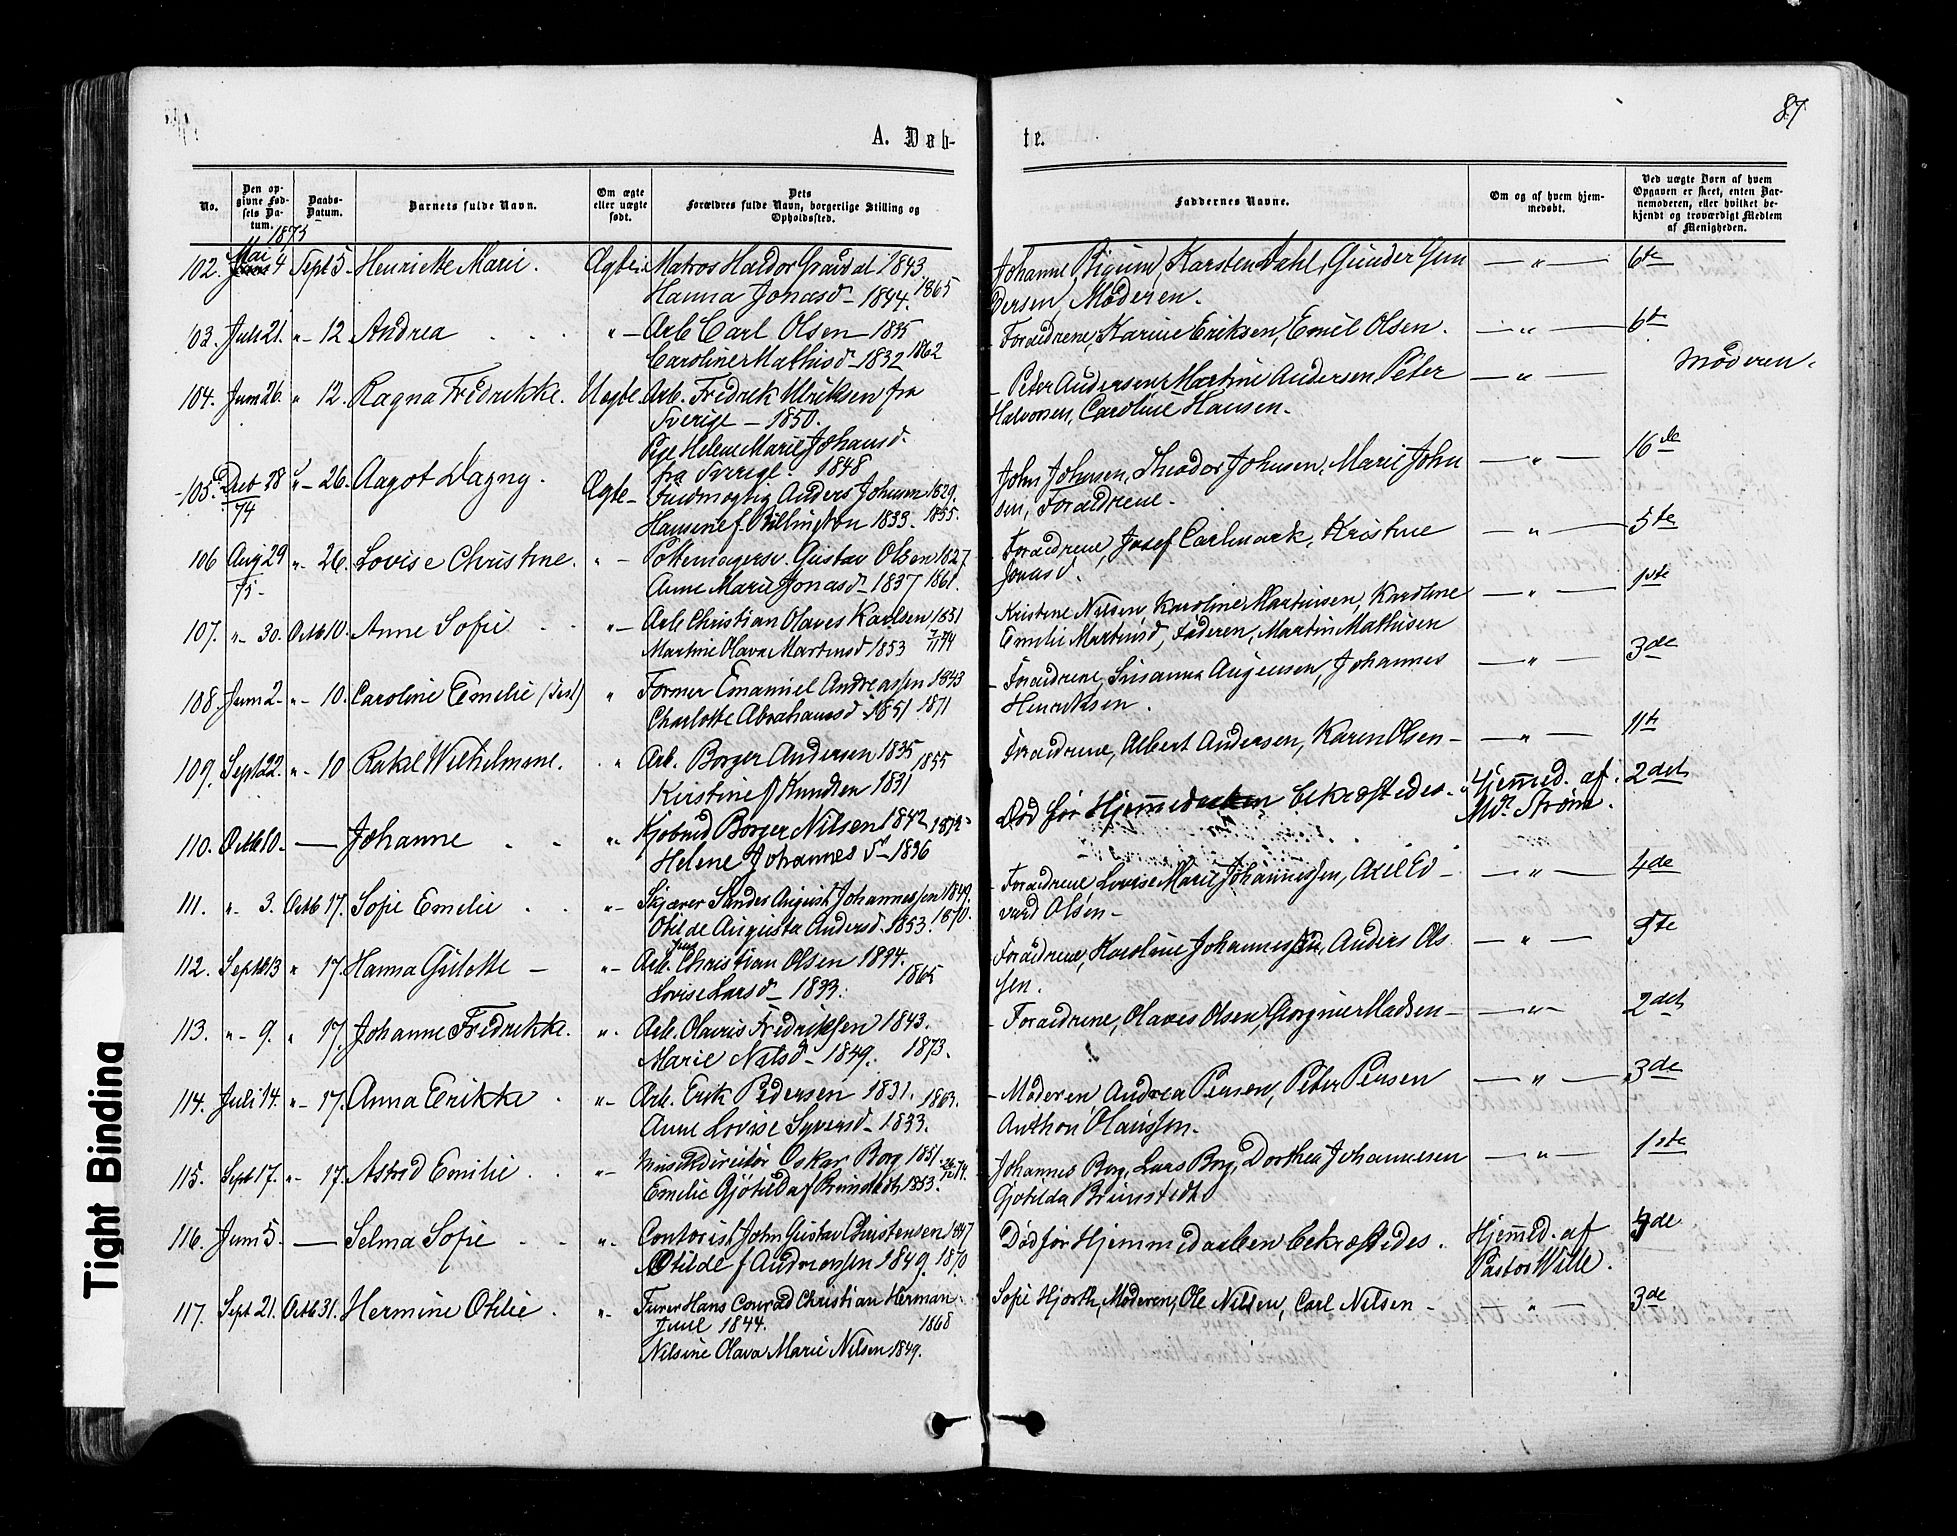 87
A. Døb-
te.
No.
Den op-
givne Fød-
sels Da-
tum.
Daabs-
Datum.
Barnets fulde Navn.
Om ægte
eller uægte
født.
Dets
Forældres fulde Navn, borgerlige Stilling og
Opholdssted.
Faddernes Navne.
Om og af hvem hjem-
medøbt.
Ved uægte Børn af hvem
Opgaven er skeet, enten Bar-
nemoderen, eller hvilket be-
kjendt og troværdigt Medlem
af Menigheden.
1875
102. Mai 4 Sept 5 Henriette Marie. Ægte Matros Haldor 1843. Johanne Karsten Dahl, Gunder Gun — " — 6te
Hanna Jonasd - 1844. 1865 dersen, Moderen.
103. Juli 21. "- 12 Andrea . . . " - Arb. Carl Olsen - 1835 Foraldrene, Karine Eriksen, Emil Olsen. — " — 6te
Caroline Mathisd - 1832 1862
104. Juni 26. " 12. Ragna Fredrikke. Uægte. Arb. Fredrek Ulriksen fra - Peter Andersen, Martine Andersen Peter — " — Moderen.
Sverige - 1850. Halvorsen, Caroline Hansen.
Pige Helene Marie Johansd.
fra Sverrige 1848
105. Dcb 28 "- 26. Aagot Dagny. Ægte - Anders Johnsen 1829. John Johnsen, Theodor Johnsen, Marie John — " — 16de
74 1833. 1855. sen, Foraldrene.
106 Aug 29 "- 26. Lovise Christine. " - Pottemagersv. Gustav Olsen 1827 - Foraldrene, Josef Carlmark, Kristine — " — 5te
75 - Anne Marie Jonasd - 1837 1861. Jonasd.
107. "- 30. Octb 10. Anne Sofie . . " - Arb. Christian Olaves Karlsen 1851 Kristine Nilsen, Karoline Martinsen, Karoline — " — 1ste
Martine Olava Martinsd 1853 74 Emilie Martinsd, Faderen, Martin Mathisen
108. Juni 2 "- 10. Caroline Emilie " Former Emanuel Andreassen 1843 - Foraldrene, Susanna Johannes — " — 3de
Charlotte Abrahamsd - 1851 1871 Henriksen.
109. Septb 22. "- 10 Rakel Wilhelmine. . " Arb. Borger Andersen 1835 1855 Foraldrene, Albert Andersen, Karen Olsen - — " — 11te
Kirstine f Knudsen 1831
110. Octb 10. — Johanne . . " Borger Nilsen 1842 Død før bekræftedes. Hjemed. af 2det
Helene Johannesd - 1836 Strøm.
111. "- 3. Octb 17. Sofie Emelie . . " - August Johannessen 1849. - Foraldrene, Lovise Marie Johannessen, Axel Ed - — " — 4de
Otilde Augusta Andersd. 1853. 1870. vard Olsen -
112. Septb 13 " 17. Hanna — " - Arb. Christian Olsen 1844. Foraldrene, Karoline Johannessen, Anders Ols — " — 5te
Lovise Larsd - 1833. 1865 sen.
113. "- 9. " 17. Johanne Fredrikke. " . Arb. Olavus Fredriksen 1843. - Foraldrene, Olaves Olsen, Georgine Madsen - — " — 2det
Marie Nilsd - 1849. 1873.
114. Juli 14. "- 17. Anna Erikke . " - Arb. Erik Pedersen 1831. 1863. - Moderen Andrea Pensen, Peter Pensen — " — 3de
Anne Lovise Syversd - 1833. Anthon Olaussen.
115. Sept 17. "- 17. Astrid Emilie . " - Musikdirectør Oskar Borg 1851. 74. - Johannes Borg, Lars Borg, Dorthea Johannesen — " — 1ste
Emelie 1853. Gjøtilda Brunstedt
116. Juni 5. — Selma Sofie . . " . Contorist John Gustav Christensen 1847 Død før Hjemmedaaben bekræftedes. Hjemed. af
Otilde f Andreassen 1849. 1870. Pastor Wille.
117. Sept 21. Octb 31. Hermine Otilie . " - Furer Hans Conrad Christian Herman Sofie Hjorth, Moderen, Ole Nilsen, Carl Nilsen - " — 3de
Juul 1844. 1868
Nilsine Olava Marie Nilsen 1849.
Tight Binding